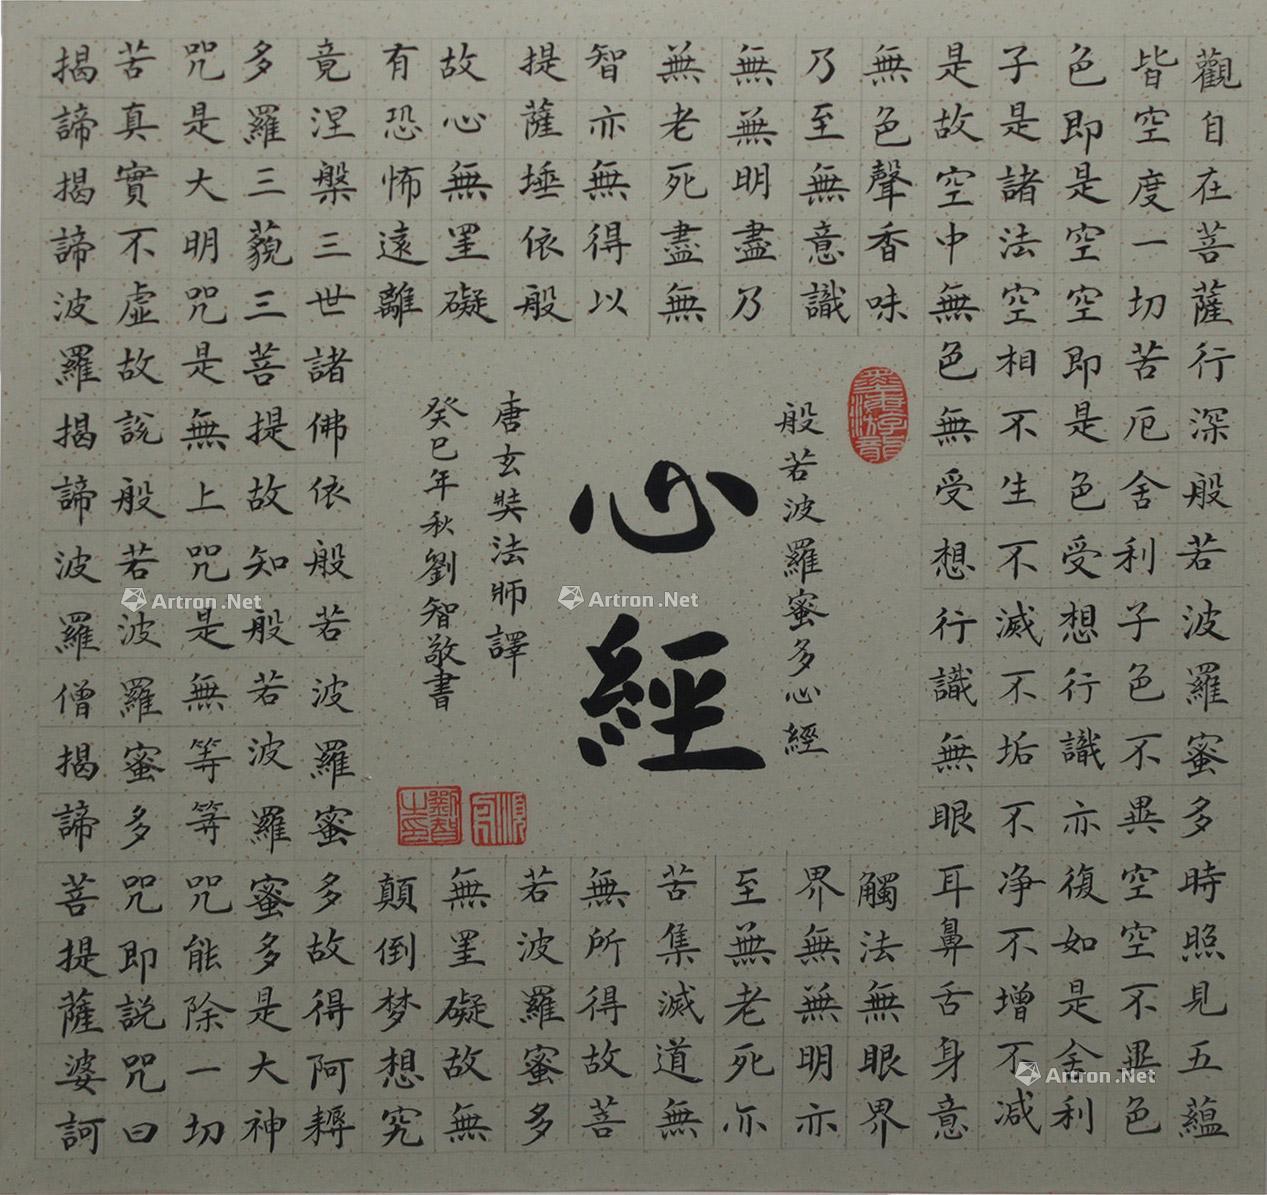 觀自在菩薩行深般若波羅蜜多時照見五蘊
皆空度一切苦厄舍利子色不異空空不異色
色即是空空即是色受想行識亦復如是舍利
子是諸法空相不生不滅不垢不净不增不减
是故空中無色無受想行識無眼耳鼻舌身意
無色聲香味
觸法無眼界
乃至無意識
界無無明亦
無無明盡乃
至無老死亦
無老死盡無
苦集滅道無
智亦無得以
無所得故菩
提薩埵依般
若波羅蜜多
故心無罣礙
無罣礙故無
有恐怖遠離
顛倒梦想究
竟涅槃三世諸佛依般若波羅蜜多故得阿耨
多羅三藐三菩提故知般若波羅蜜多是大神
咒是大明咒是無上咒是無等等咒能除一切
苦真實不虛故說般若波羅蜜多咒即說咒曰
揭諦揭諦波羅揭諦波羅僧揭諦菩提薩婆訶
般若波羅蜜多心經
心經
唐玄奘法師譯
癸巳年秋劉智敬書
劉智之印
Artron.Net
Artron.Net
Artron.Net